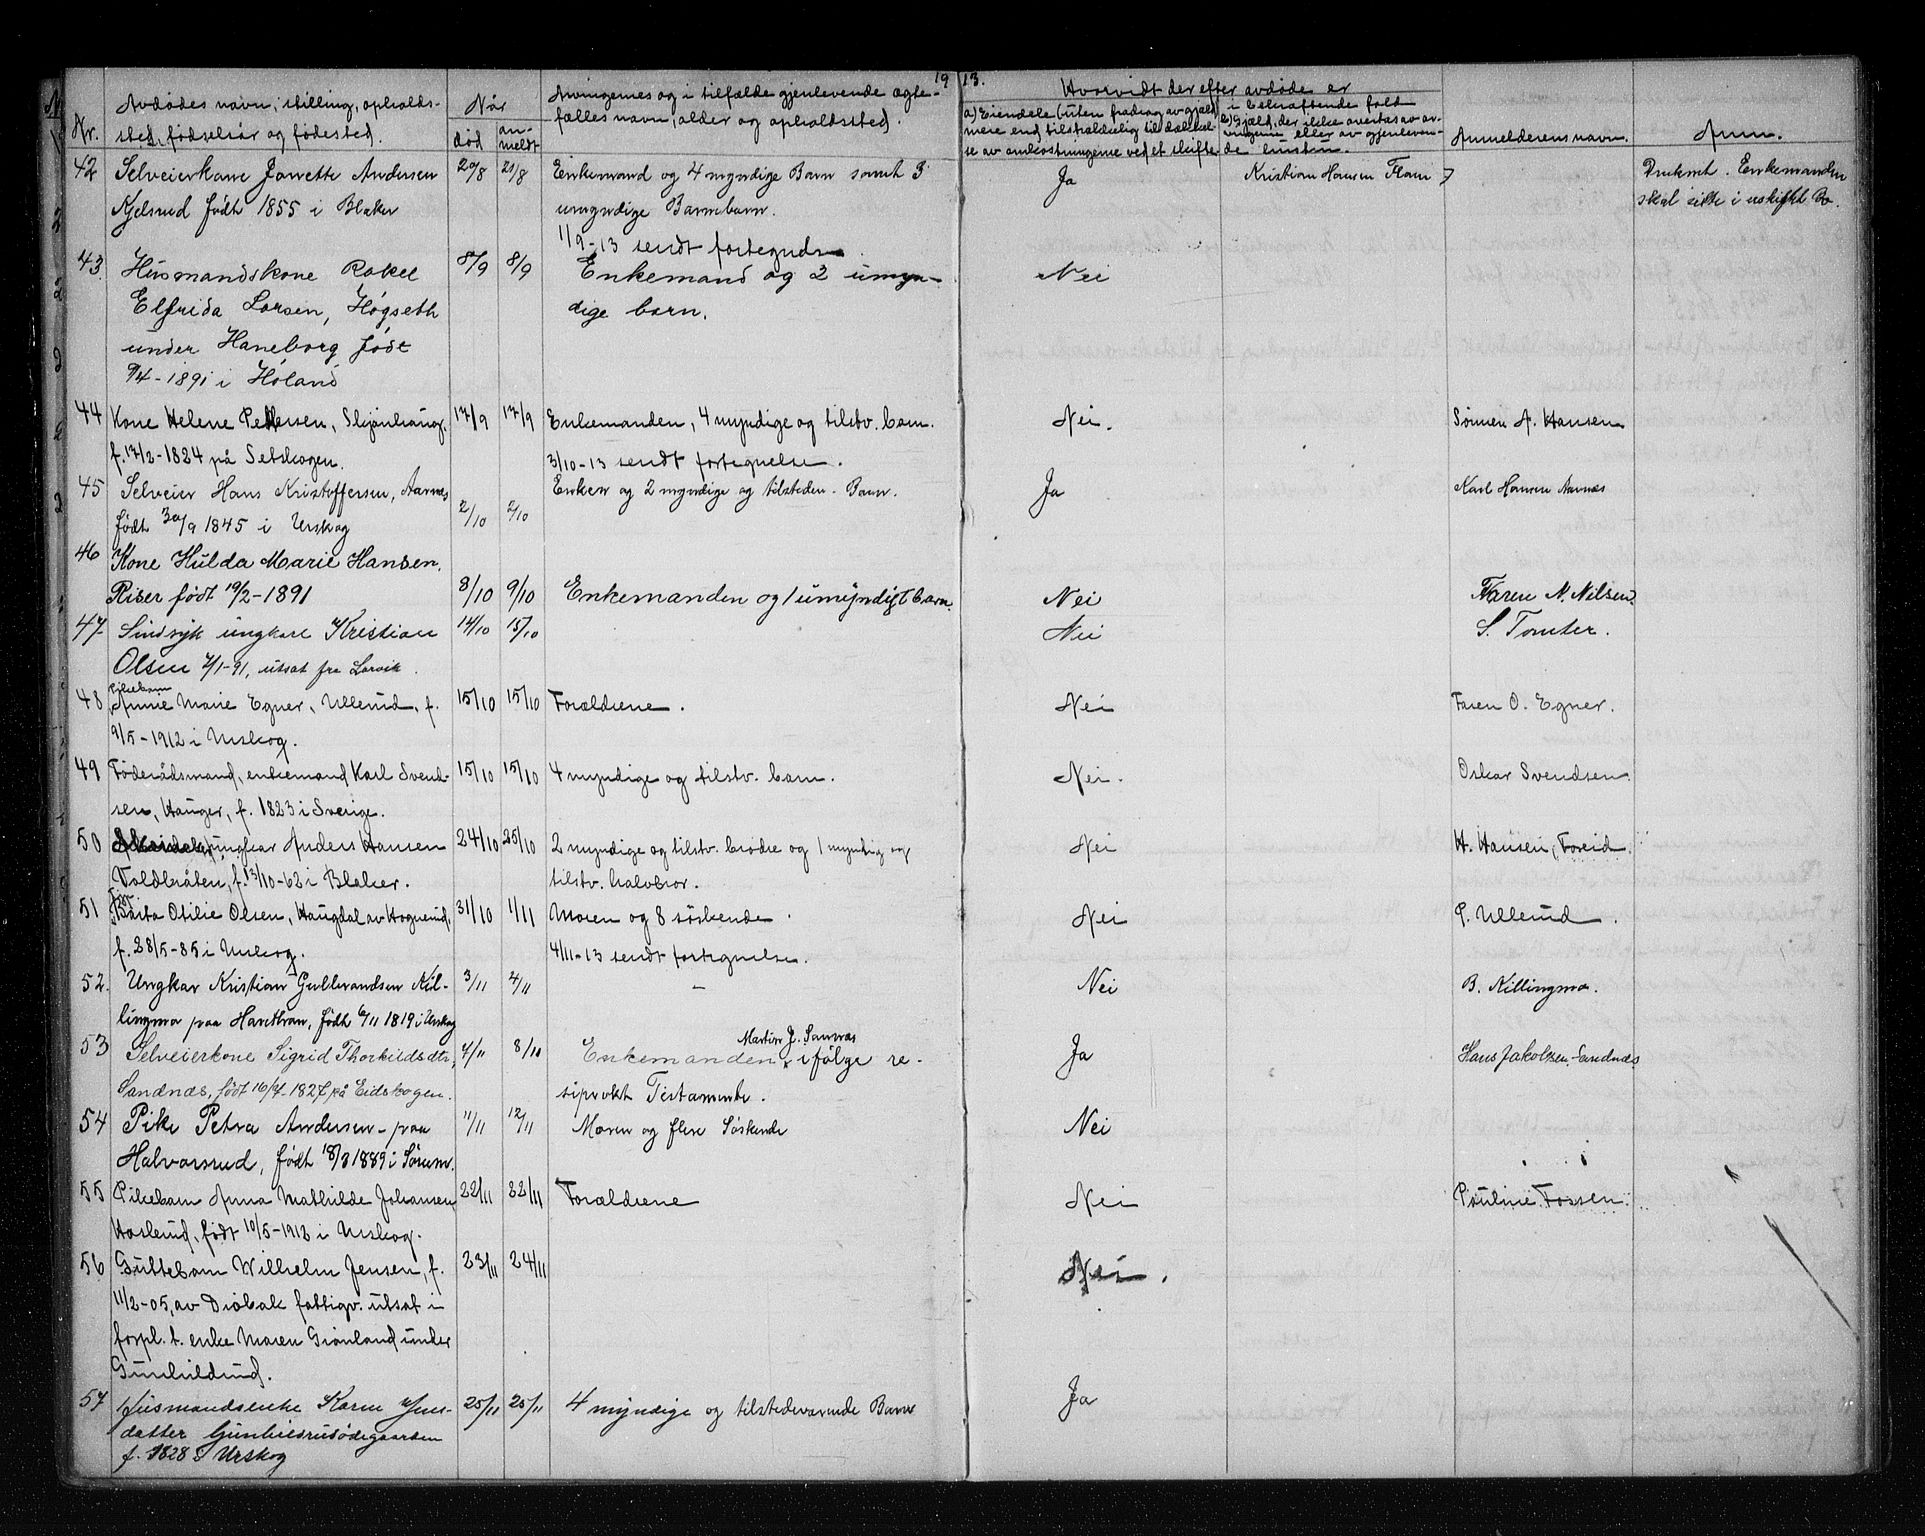 19 13.
Nr.
Avdødes navn, stilling, opholds-
sted, fødselsår og fødested.
Når
død
an-
meldt
Arvingernes og i tilfælde gjenlevende ægte-
fælles navn, alder og opholdssted.
Hvorvidt der efter avdøde er
a) Eiendele (uten fradrag av gjæld) i
mere end tilstrækkelig til dækkel-
se av omkostningerne ved et skifte
b) Gjæld, der ikke overtas av ar-
vingerne eller av gjenleven-
de
Anmelderens navn.
Anm.
42 Selveierkone Janette Andersen 20/8 21/8 Enkemand og 4 myndige Barn samt 3 Ja Kristian Hansen Anmt. Enkemanden
Kjelsrud født 1855 i Blaker umyndige Barnebarn. skal sitte i uskiftet Bo.
1/9-13 sendt fortegnelse
43. Husmandskone Rakel 8/9 8/9 Enkemand og 2 umyn- Nei
Elfrida Larsen, Høgseth dige barn.
under Haneborg født
9/4-1891 i Høland
44 Kone Helene Pettersen, Skjønhaug. 17/9 17/9 Enkemanden, 4 myndige og tilstv. barn. Nei. Sønnen A. Hansen
f. 17/2-1824 på Setskogen. 3/10-13 sendt fortegnelse.
45 Selveier Hans Kristoffersen, Aarnes 2/10 2/10 Enken og 2 myndige og tilsteden. Barn. Ja Karl Hansen Aarnæs
født 30/9 1845 i Urskog
46 Kone Hulda Marie Hansen.
Riser født 19/2-1891 8/10 9/10 Enkemanden og 1 umyndigt barn. Nei Faren N. Nilsen.
47. Sindsyk ungkare Kristian 14/10 15/10 Nei S. Tomter.
Olsen 7/1-91, utsat fra Larvik.
48 Pikebarn Annie Marie Egner, Ullerud, f. 15/10 15/10 Forældrene. Nei Faren O. Egner.
9/5-1912 i Urskog.
49 Føderådsmand, enkemand Karl Svend- 15/10 15/10 4 myndige og tilstv. barn. Nei. Oskar Svendsen
sen, Hauger, f. 1823 i Sverige.
50 ungkar Anders Hansen 24/10 25/10 2 myndige og tilstv. brødre og 1 myndig og Nei H. Hansen, Foreid.
Voldbråten, f. 13/10-62 i Blaker. tilstv. halvbror.
51 Berta Otilie Olsen, Haugdal av Hognerud, 31/10 1/11 Moren og 8 søskende. Nei P. Ullerud.
f. 28/5-85 i Urskog. 4/11-13 sendt fortegnelse.
52. Ungkar Kristian Gulbrandsen Kil- 3/11 4/11 – Nei B. Killingmo.
lingmo paa Hanethran, født 6/11 1819 i Urskog
53 Selveierkone Sigrid Thorkildsdtr, 4/11 8/11 Enkemanden Martin J. Sannæs ifølge re- Ja Hans Jakobsen Sandnæs
Sandnæs, født 16/4-1827 på Eidskogen. siprokt Testamente.
54 Pike Petra Andersen - paa 11/11 12/11 Moren og flere Søskende Nei
Halvorsrud, født 18/8 1889 i Sørum.
55 Pikebarn Anna Mathilde Johansen 22/11 22/11 Forældrene Nei Pauline Fossen.
Haslerud, født 10/5-1912 i Urskog.
56 Guttebarn Wilhelm Jensen, f. 23/11 24/11 Nei.
11/2-05, av Drøbak fattigv. utsat i
forpl. h. enke Maren Grønland under
Gunhildrud.
57 Husmandsenke Karen Jens- 25/11 25/11 4 myndige og tilstedeværende Barn Ja
datter Gunhildrudødegaarden
f. 1828 i Urskog